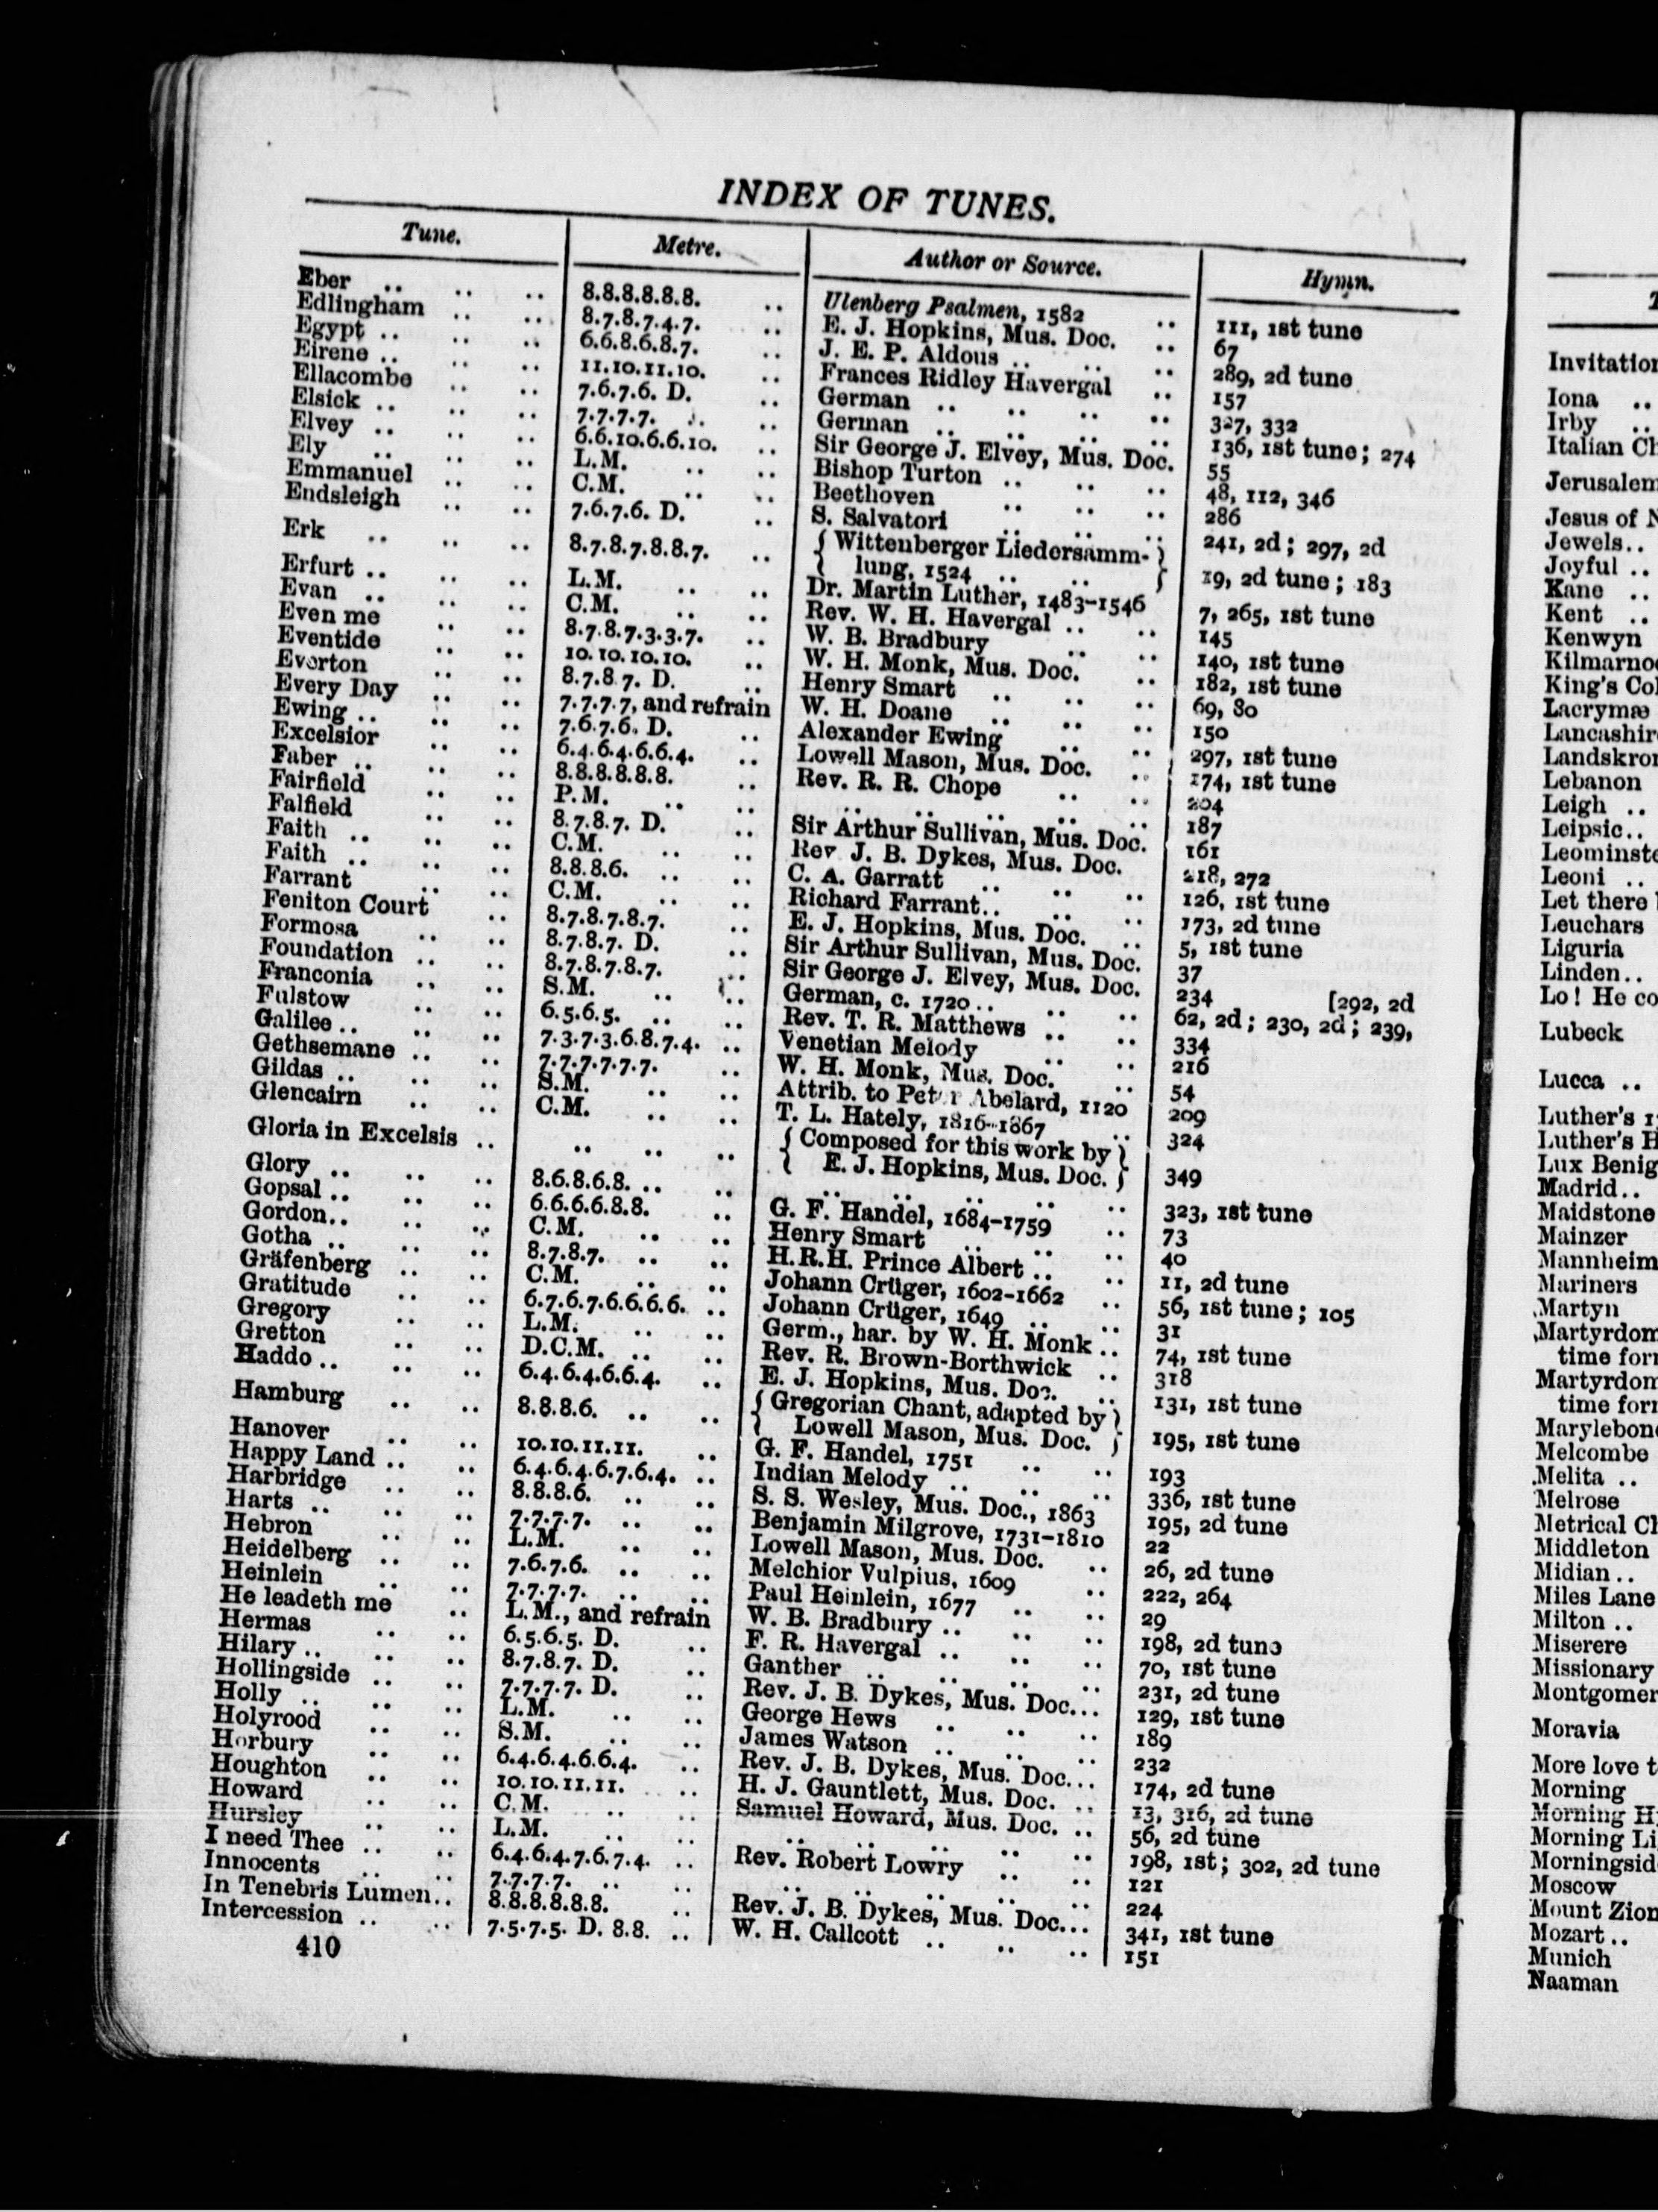 INDEX OF TUNES.
Tune. Metre. Author or Source. Hymn.
Eber .. .. .. 8.8.8.8.8.8. .. Ulenberg Psalmen, 1582 .. 111, 1st tune
Edlingham .. .. 8.7.8.7.4.7. .. E. J. Hopkins, Mus. Doc. .. 67
Egypt .. .. .. 6.6.8.6.8.7. .. J. E. P. Aldous .. .. .. 289, 2d tune
Eirene .. .. .. 11.10.11.10. .. Frances Ridley Havergal .. 157
Ellacombe .. .. 7.6.7.6. D. .. German .. .. .. .. 327, 332
Elsick .. .. .. 7.7.7.7. .. .. German .. .. .. .. 136, 1st tune; 274
Elvey .. .. .. 6.6.10.6.6.10. .. Sir George J. Elvey, Mus. Doc. 55
Ely .. .. .. L.M. .. .. Bishop Turton .. .. .. 48, 112, 346
Emmanuel .. .. C.M. .. .. Beethoven .. .. .. 286
Endsleigh .. .. 7.6.7.6. D. .. S. Salvatori .. .. .. 241, 2d; 297, 2d
Erk .. .. .. 8.7.8.7.8.8.7. .. { Wittenberger Liedersamm- lung, 1524 .. .. } 19, 2d tune; 183
Erfurt .. .. .. L.M. .. .. Dr. Martin Luther, 1483-1546 7, 265, 1st tune
Evan .. .. .. C.M. .. .. Rev. W. H. Havergal .. .. 145
Even me .. .. 8.7.8.7.3.3.7. .. W. B. Bradbury .. .. 140, 1st tune
Eventide .. .. 10.10.10.10. .. W. H. Monk, Mus. Doc. .. 182, 1st tune
Everton .. .. 8.7.8.7. D. .. Henry Smart .. .. .. 69, 80
Every Day .. .. 7.7.7.7, and refrain W. H. Doane .. .. .. 150
Ewing .. .. .. 7.6.7.6. D. .. Alexander Ewing .. .. 297, 1st tune
Excelsior .. .. 6.4.6.4.6.6.4. .. Lowell Mason, Mus. Doc. .. 174, 1st tune
Faber .. .. .. 8.8.8.8.8.8. .. Rev. R. R. Chope .. .. 204
Fairfield .. .. P.M. .. .. .. .. .. .. .. 187
Falfield .. .. 8.7.8.7. D. .. Sir Arthur Sullivan, Mus. Doc. 161
Faith .. .. .. C.M. .. .. Rev. J. B. Dykes, Mus. Doc. 218, 272
Faith .. .. .. 8.8.8.6. .. .. C. A. Garratt .. .. .. 126, 1st tune
Farrant .. .. C.M. .. .. Richard Farrant.. .. .. 173, 2d tune
Feniton Court .. 8.7.8.7.8.7. .. E. J. Hopkins, Mus. Doc. .. 5, 1st tune
Formosa .. .. 8.7.8.7. D. .. Sir Arthur Sullivan, Mus. Doc. 37
Foundation .. .. 8.7.8.7.8.7. .. Sir George J. Elvey, Mus. Doc. 234 [292, 2d
Franconia .. .. S.M. .. .. German, c. 1720 .. .. .. 62, 2d; 230, 2d; 239,
Fulstow .. .. 6.5.6.5. .. .. Rev. T. R. Matthews .. .. 334
Galilee .. .. .. 7.3.7.3.6.8.7.4. .. Venetian Melody .. .. 216
Gethsemane .. .. 7.7.7.7.7.7. .. W. H. Monk, Mus. Doc. .. 54
Gildas .. .. .. S.M. .. .. Attrib. to Peter Abelard, 1120 209
Glencairn .. .. C.M. .. .. T. L. Hately, 1816-1867 .. 324
Gloria in Excelsis .. .. .. .. { Composed for this work by E. J. Hopkins, Mus. Doc. } 349
Glory .. .. .. 8.6.8.6.8. .. .. .. .. .. .. .. 323, 1st tune
Gopsal .. .. .. 6.6.6.6.8.8. .. G. F. Handel, 1684-1759 .. 73
Gordon.. .. .. C.M. .. .. Henry Smart .. .. .. 40
Gotha .. .. .. 8.7.8.7. .. .. H.R.H. Prince Albert .. .. 11, 2d tune
Gräfenberg .. .. C.M. .. .. Johann Crüger, 1602-1662 .. 56, 1st tune; 105
Gratitude .. .. 6.7.6.7.6.6.6.6. .. Johann Crüger, 1649 .. .. 31
Gregory .. .. L.M. .. .. Germ., har. by W. H. Monk .. 74, 1st tune
Gretton .. .. D.C.M. .. .. Rev. R. Brown-Borthwick .. 318
Haddo .. .. .. 6.4.6.4.6.6.4. .. E. J. Hopkins, Mus. Doc. .. 131, 1st tune
Hamburg .. .. 8.8.8.6. .. .. { Gregorian Chant, adapted by Lowell Mason, Mus. Doc. } 195, 1st tune
Hanover .. .. 10.10.11.11. .. G. F. Handel, 1751 .. .. 193
Happy Land .. .. 6.4.6.4.6.7.6.4. .. Indian Melody .. .. .. 336, 1st tune
Harbridge .. .. 8.8.8.6. .. .. S. S. Wesley, Mus. Doc., 1863 195, 2d tune
Harts .. .. .. 7.7.7.7. .. .. Benjamin Milgrove, 1731-1810 22
Hebron .. .. L.M. .. .. Lowell Mason, Mus. Doc. .. 26, 2d tune
Heidelberg .. .. 7.6.7.6. .. .. Melchior Vulpius, 1609 .. 222, 264
Heinlein .. .. 7.7.7.7. .. .. Paul Heinlein, 1677 .. .. 29
He leadeth me .. L.M., and refrain W. B. Bradbury .. .. .. 198, 2d tune
Hermas .. .. 6.5.6.5. D. .. F. R. Havergal .. .. .. 70, 1st tune
Hilary .. .. .. 8.7.8.7. D. .. Ganther .. .. .. .. 231, 2d tune
Hollingside .. .. 7.7.7.7. D. .. Rev. J. B. Dykes, Mus. Doc... 129, 1st tune
Holly .. .. .. L.M. .. .. George Hews .. .. .. 189
Holyrood .. .. S.M. .. .. James Watson .. .. .. 232
Horbury .. .. 6.4.6.4.6.6.4. .. Rev. J. B. Dykes, Mus. Doc... 174, 2d tune
Houghton .. .. 10.10.11.11. .. H. J. Gauntlett, Mus. Doc. .. 13, 316, 2d tune
Howard .. .. C.M. .. .. Samuel Howard, Mus. Doc. .. 56, 2d tune
Hursley .. .. L.M. .. .. .. .. .. .. .. 198, 1st; 302, 2d tune
I need Thee .. .. 6.4.6.4.7.6.7.4. .. Rev. Robert Lowry .. .. 121
Innocents .. .. 7.7.7.7. .. .. .. .. .. .. .. 224
In Tenebris Lumen.. 8.8.8.8.8.8. .. Rev. J. B. Dykes, Mus. Doc... 341, 1st tune
Intercession .. .. 7.5.7.5. D. 8.8. .. W. H. Callcott .. .. .. 151
410
Invitation
Iona ..
Irby ..
Italian Ch
Jerusalem
Jesus of N
Jewels..
Joyful ..
Kane ..
Kent ..
Kenwyn
Kilmarnoc
King's Col
Lacrymæ
Lancashire
Landskron
Lebanon
Leigh ..
Leipsic..
Leominste
Leoni ..
Let there
Leuchars
Liguria
Linden..
Lo! He co
Lubeck
Lucca ..
Luther's 1
Luther's H
Lux Benig
Madrid..
Maidstone
Mainzer
Mannheim
Mariners
Martyn
Martyrdom
time for
Martyrdom
time for
Marylebone
Melcombe
Melita ..
Melrose
Metrical Ch
Middleton
Midian ..
Miles Lane
Milton ..
Miserere
Missionary
Montgomer
Moravia
More love t
Morning
Morning H
Morning Li
Morningsid
Moscow
Mount Zion
Mozart..
Munich
Naaman